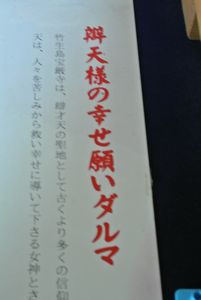 辯天様の幸せ願いダルマ
竹生島宝厳寺は、辯才天の聖地として古くより多くの信仰
天は、人々を苦しみから救い幸せに導いて下さる女神とさ